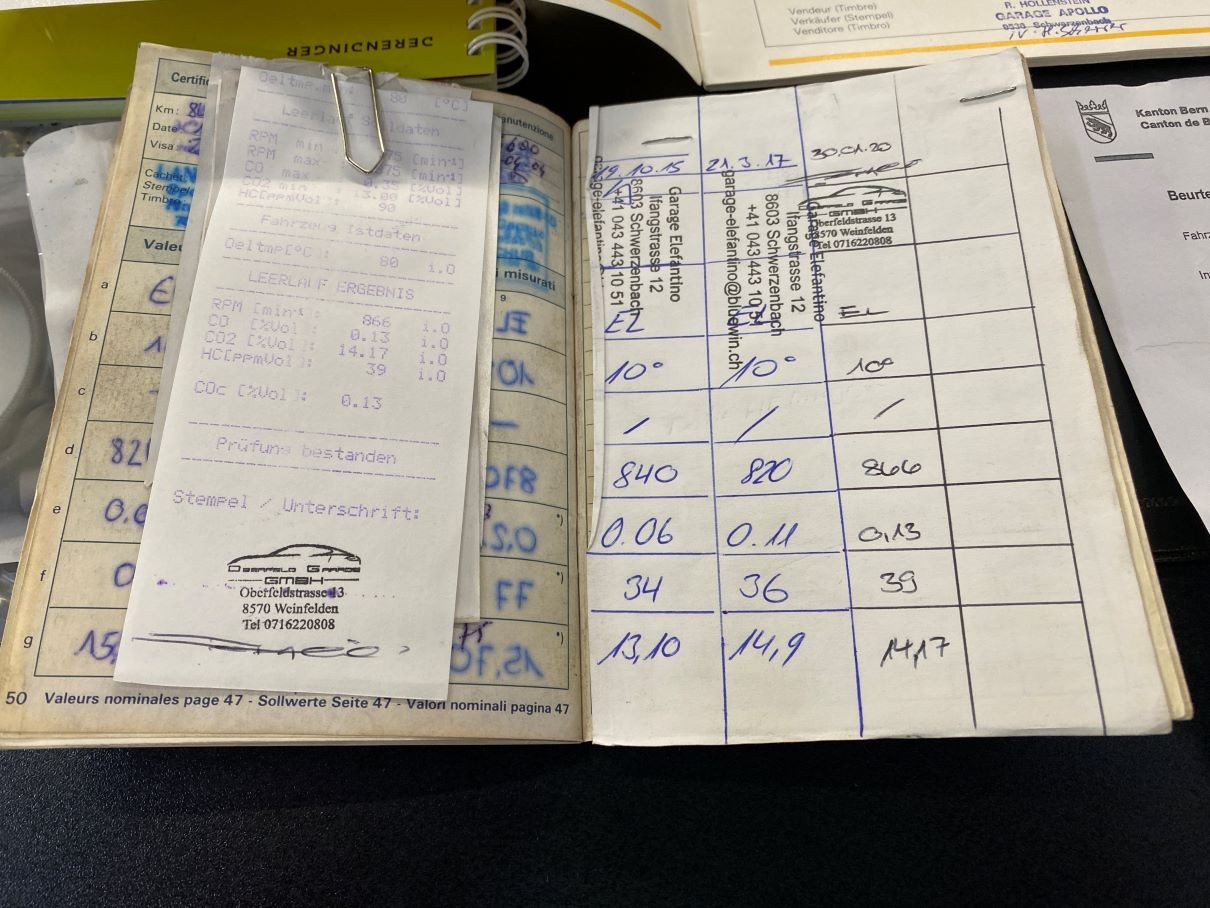 DERENDINGER
Vendeur (Timbre)
Verkäufer (Stempel)
Venditore (Timbro)
R. HOLLENSTEIN
GARAGE APOLLO
8530 Schwerzenbach
Kanton Bern
Canton de B
Beurte
Fahrz
In
Certific
Km:
Date
Visa:
Cachet
Stempel
Timbro
Valeur
a
b
c
d
82
e
0.0
f
0
g
15,
anutenzione
i misurati
g
Oeltmp. 80 [°C]
Leerlauf Solldaten
RPM min [min-1]
RPM max [min-1]
CO max 0.35 [%Vol]
CO2 min 13.00 [%Vol]
HC[ppmVol]: 90
Fahrzeug Istdaten
Oeltmp[°C]: 80 i.O
LEERLAUF ERGEBNIS
RPM [min-1]: 866 i.O
CO [%Vol]: 0.13 i.O
CO2 [%Vol]: 14.17 i.O
HC[ppmVol]: 39 i.O
COc [%Vol]: 0.13
Prüfung bestanden
Stempel / Unterschrift:
OBERFELD GARAGE
GMBH
Oberfeldstrasse 13
8570 Weinfelden
Tel 0716220808
*)
*)
*)
50 Valeurs nominales page 47 - Sollwerte Seite 47 - Valori nominali pagina 47
19.10.15 21.3.17 30.01.20
Garage Elefantino
Ifangstrasse 12
8603 Schwerzenbach
+41 043 443 10 51
garage-elefantino
Garage Elefantino
Ifangstrasse 12
8603 Schwerzenbach
+41 043 443 10 51
garage-elefantino@bluewin.ch
GMBH
Oberfeldstrasse 13
8570 Weinfelden
Tel 0716220808
EL
10° 10° 10°
/ / /
840 820 866
0.06 0.11 0,13
34 36 39
13,10 14,9 14,17